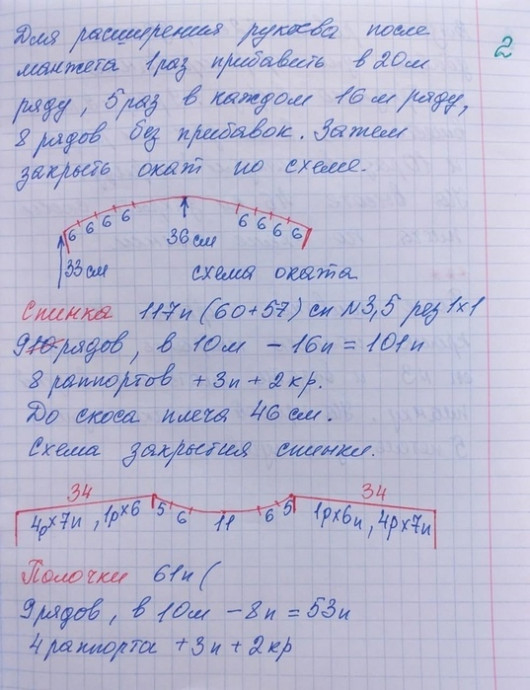 2
Для расширения рукава после
манжета 1 раз прибавить в 20м
ряду, 5 раз в каждом 16м ряду,
8 рядов без прибавок. Затем
закрыть окат по схеме.
6 6 6 6 36 см 6 6 6 6
33 см схема оката
Спинка 117п (60+57) сп №3,5 рез 1х1
9 рядов, в 10м - 16п = 101п
8 раппортов + 3п + 2 кр.
До скоса плеча 46 см.
Схема закрытия спинки.
34 34
4р х 7п, 1р х 6 5 6 11 6 5 1р х 6п, 4р х 7п
Полочки 61п (
9 рядов, в 10м - 8п = 53п
4 раппорта + 3п + 2 кр